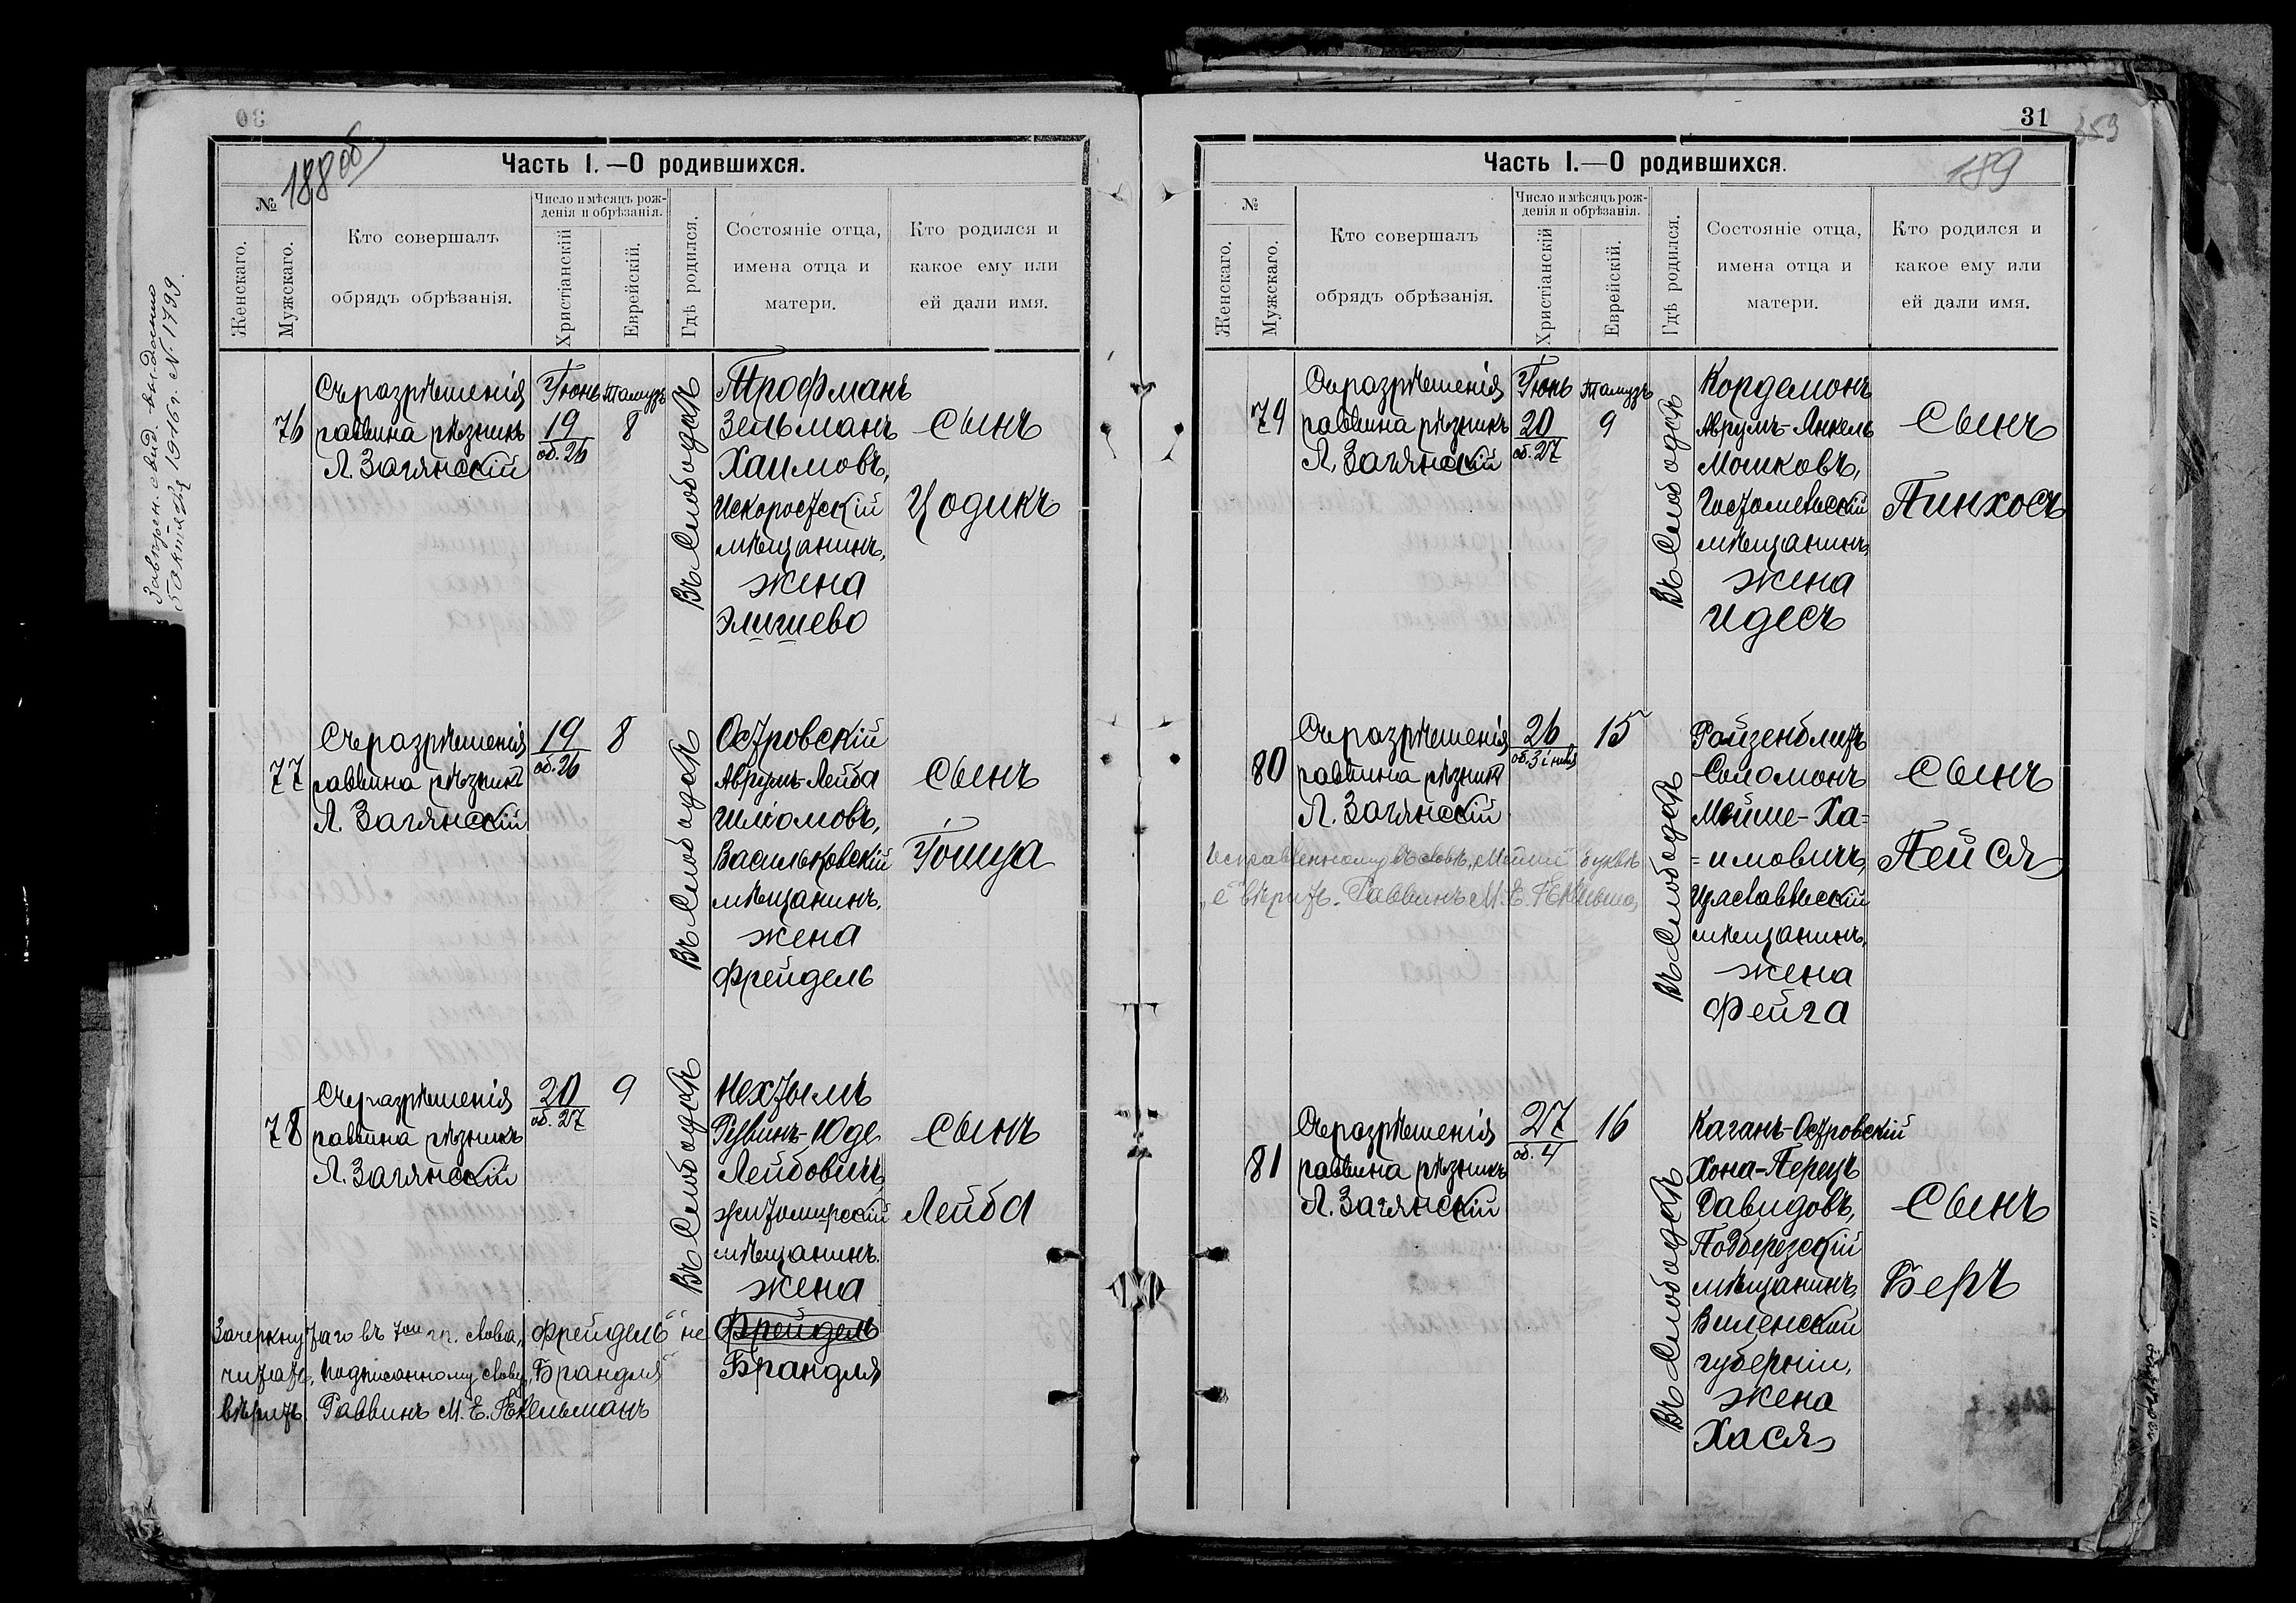 30
188 об
Часть I.—О родившихся.
№
Женскаго.
Мужскаго.
Кто совершалъ
обрядъ обрѣзанія.
Число и мѣсяцъ рож-
денія и обрѣзанія.
Христіанскій
Еврейскій.
Гдѣ родился.
Состояніе отца,
имена отца и
матери.
Кто родился и
какое ему или
ей дали имя.
1916 г. № 1799.
76
Съ разрѣшенія
раввина рѣзникъ
Л. Загянскій
Іюнь
19
об. 26
Тамузъ
8
Въ Слободкѣ
Трофманъ
Зельманъ
Хаимовъ,
Искоростскій
мѣщанинъ,
жена
Элишево
сынъ
Цодикъ
77
Съ разрѣшенія
раввина рѣзникъ
Л. Загянскій
19
об. 26
8
Въ Слободкѣ
Островскій
Аврумъ-Лейба
Шліомовъ,
Васильковскій
мѣщанинъ.
жена
Фрейдель
сынъ
Іошуа
78
Съ разрѣшенія
раввина рѣзникъ
Л. Загянскій
20
об. 27
9
Въ Слободкѣ
Нехтымъ
Рувинъ-Юде
Лейбовичъ
житомирскій
мѣщанинъ.
жена
Фрейдель
Брандля
сынъ
Лейба
Зачеркнутаго въ 7ой гр. слова „Фрейдель“ не
читать, подписанному слову „Брандля“
вѣрить. Раввинъ М. Е.
31
353
189
Часть I.—О родившихся.
№
Женскаго.
Мужскаго.
Кто совершалъ
обрядъ обрѣзанія.
Число и мѣсяцъ рож-
денія и обрѣзанія.
Христіанскій
Еврейскій.
Гдѣ родился.
Состояніе отца,
имена отца и
матери.
Кто родился и
какое ему или
ей дали имя.
79
Съ разрѣшенія
раввина рѣзникъ
Л. Загянскій
Іюнь
20
об. 27
Тамузъ
9
Въ Слободкѣ
Кордемонъ
Аврумъ-Янкель
Мошковъ,
Гостомельскій
мѣщанинъ,
жена
Идесъ
сынъ
Пинхосъ
80
Съ разрѣшенія
раввина рѣзникъ
Л. Загянскій
26
об. 3 іюля
15
Въ Слободкѣ
Ройзенблитъ
Соломонъ
Мейше-Ха=
=имовичъ,
Изяславльскій
мѣщанинъ,
жена
Фейга
сынъ
Пейся
Исправленному въ словѣ „Мейше“ буквѣ
„е“ вѣрить. Раввинъ М. Е.
81
Съ разрѣшенія
раввина рѣзникъ
Л. Загянскій
27
об. 4
16
Въ Слободкѣ
Каганъ-Островскій
Хона-Перецъ
Давидовъ,
Подберезскій
мѣщанинъ,
Виленской
губерніи,
жена
Хася
сынъ
Беръ